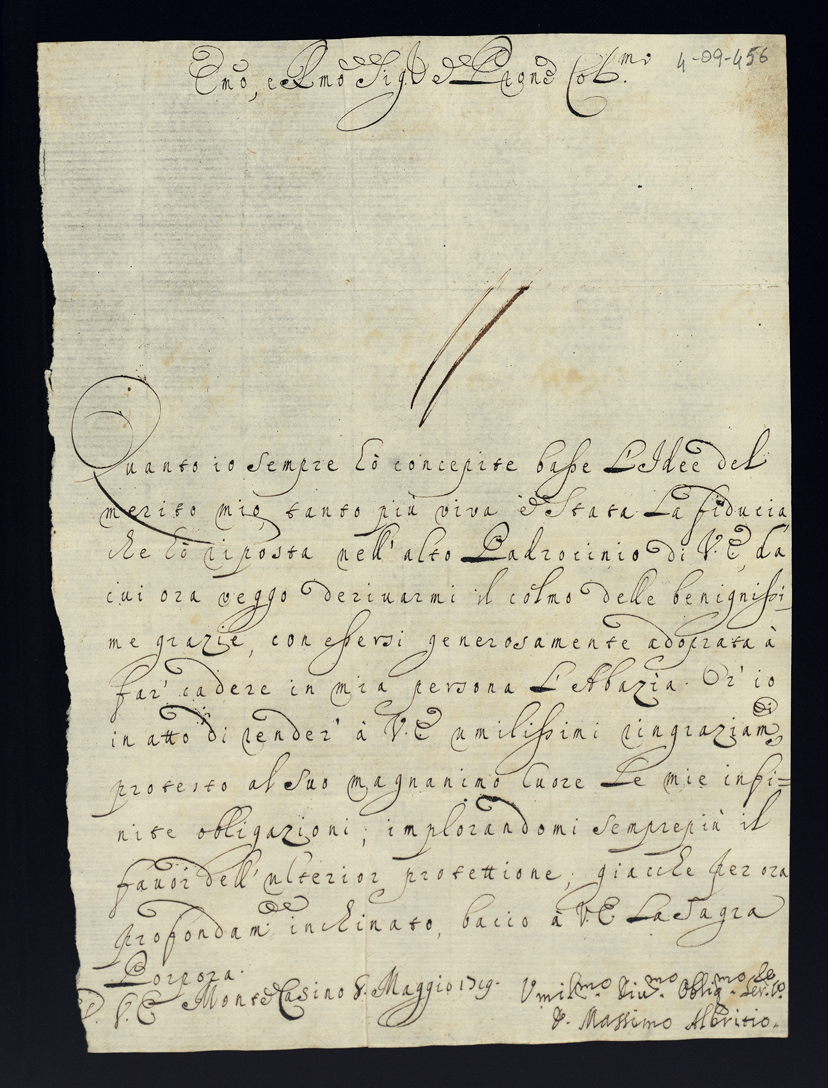 4-09-456
Emo, e Rmo Sig.r e Prone Col.mo
Quanto io sempre hò concepite basse L'Idee del
merito mio, tanto più viva è Stata La fiducia,
che hò riposta nell'alto Padrocinio di V.E., da
cui ora veggo derivarmi il colmo delle benignissi-
me grazie, con essersi generosamente adoprata à
far' cadere in mia persona L'Abazia. Or' io
in atto di render' à V.E. umilissimi ringraziam.ti
protesto al Suo magnanimo Cuore Le mie infi=
nite obbligazioni; implorandomi semprepiù il
favor dell'ulterior protettione; giacche per ora
profondam.te inchinato, bacio à V.E. La Sagra
Porpora.
V.E. Monte Casino 8. Maggio 1719. Umil.mo Diu.mo Obblig.mo Ser.re
D. Massimo Albritio.